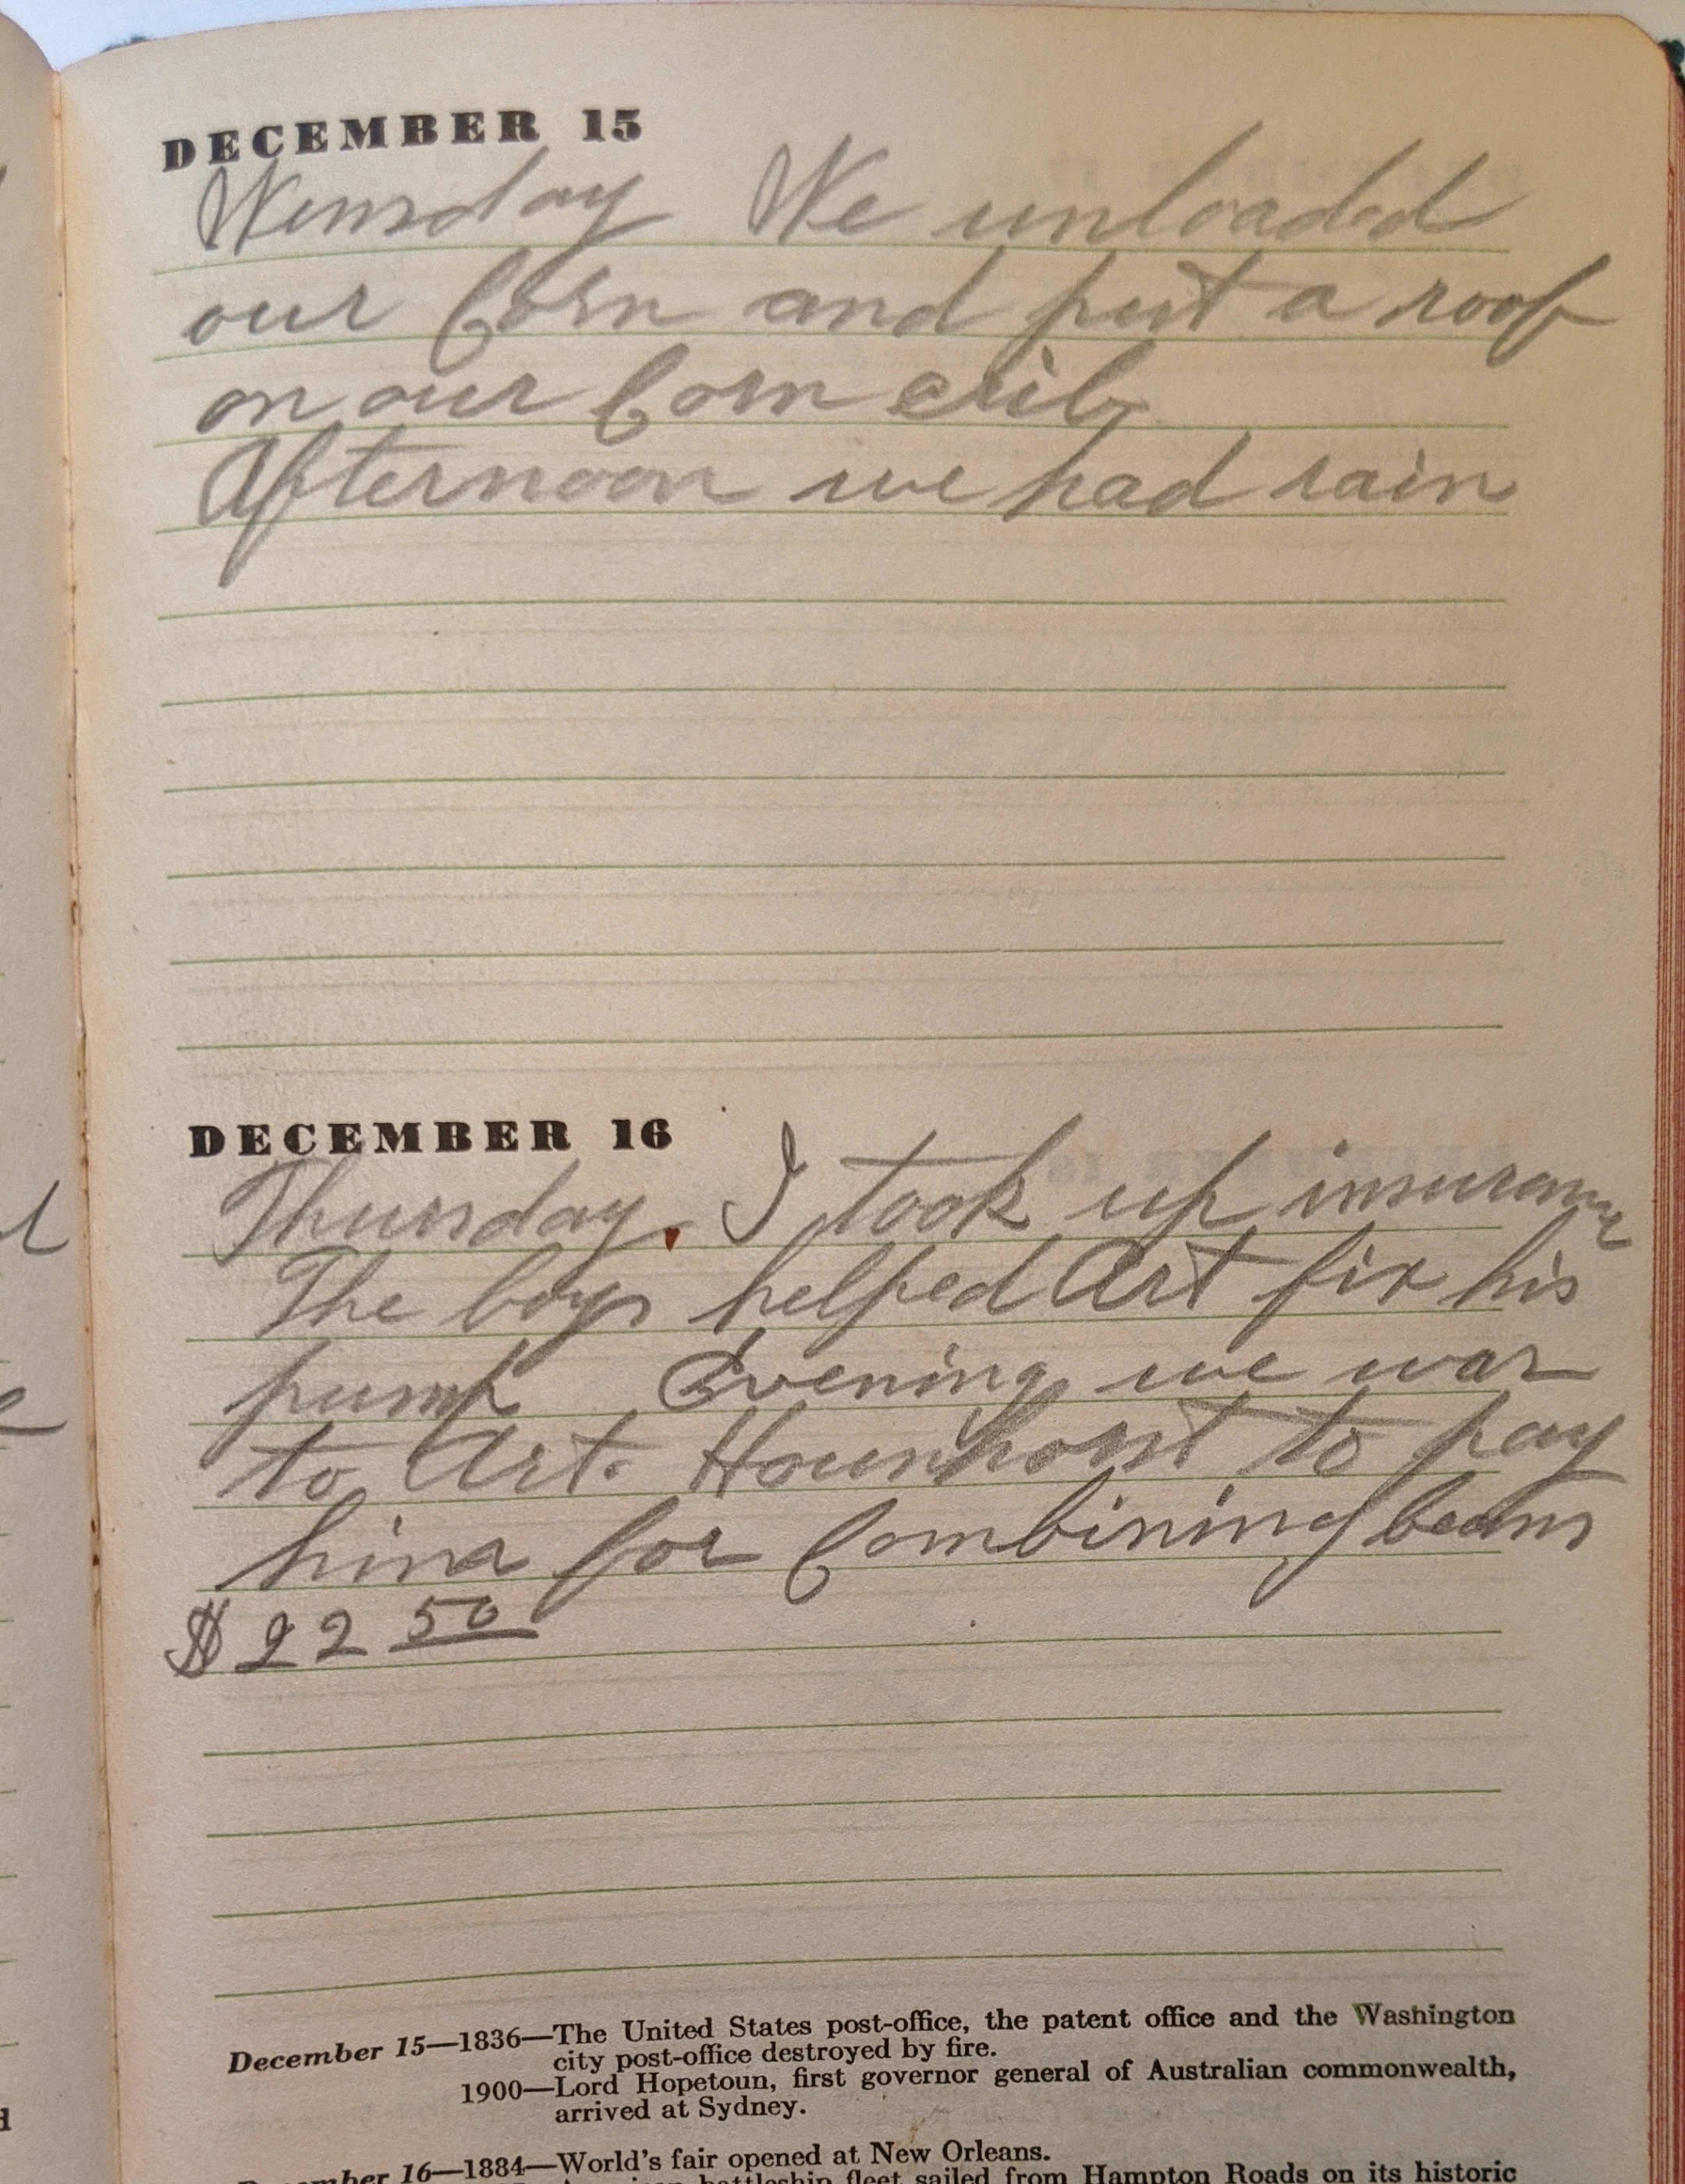 DECEMBER 15
Wensday We unloaded
our Corn and put a roof
on our Corn crib,
Afternoon we had rain
DECEMBER 16
Thursday. I took up insurance
The boys helped Art fix his
pump Evening we was
to Art. to pay
him for Combining beans
$22 50
December 15—1836—The United States post-office, the patent office and the Washington
city post-office destroyed by fire.
1900—Lord Hopetoun, first governor general of Australian commonwealth,
arrived at Sydney.
16—1884—World's fair opened at New Orleans.
American battleship fleet sailed from Hampton Roads on its historic